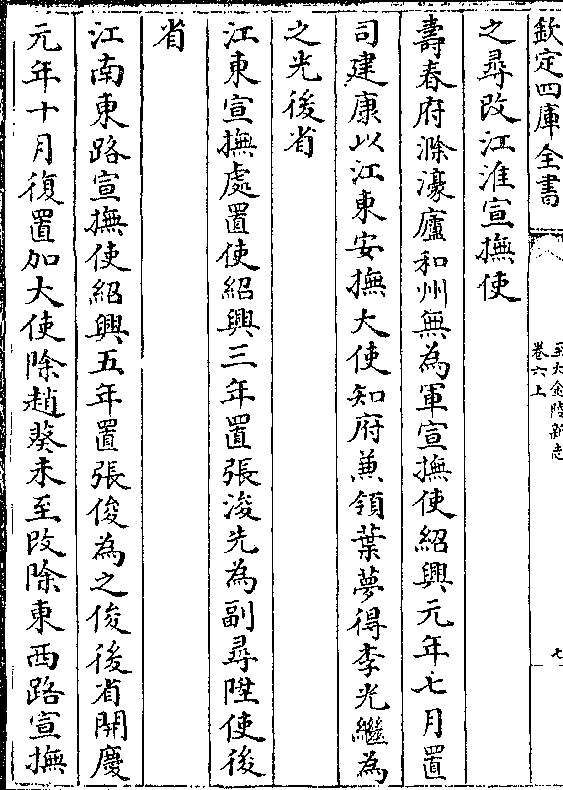 欽定四庫全書
至大金陵新志
卷六上
七
之尋改江淮宣撫使
壽春府滁濠廬和州無為軍宣撫使紹興元年七月置
司建康以江東安撫大使知府兼領葉夢得李光繼為
之光後省
江東宣撫處置使紹興三年置張浚先為副尋陞使後
省
江南東路宣撫使紹興五年置張俊為之俊後省開慶
元年十月復置加大使除趙葵未至改除東西路宣撫